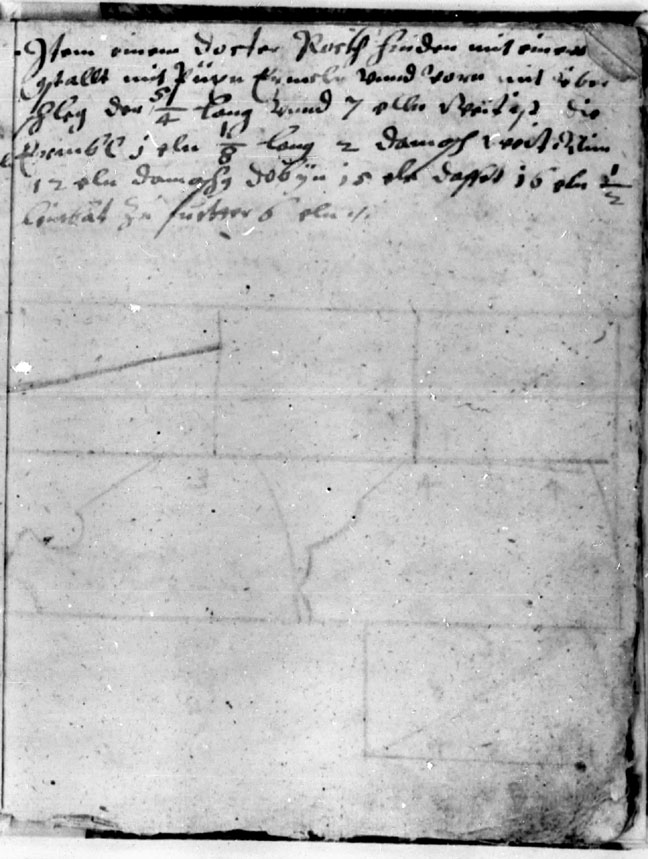 Item einem Docter Rockh hinden mit einer
gstallt mit Püxn Ermeln vnnd vorn mit über
schleg der 5/4 lang vnnd 7 elln weit ist die
1 eln 1/8 lang 2 damasch weit
12 eln damaschg dobyn 15 eln daffet 16 eln 1/2
leinbat Zu fuetter 6 eln
3
4
4